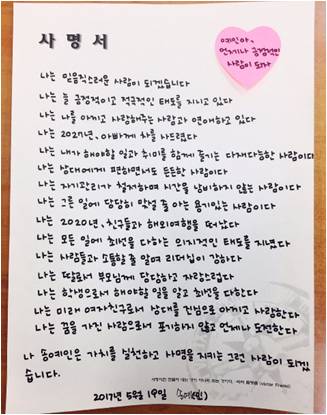 사명서
예인아,
언제나 긍정적인
사람이 되자
나는 믿음직스러운 사람이 되겠습니다
나는 늘 긍정적이고 적극적인 태도를 지니고 있다
나는 나를 아끼고 사랑해주는 사람과 연애하고 있다
나는 2027년, 아빠께 차를 사드렸다
나는 내가 해야할 일과 취미를 함께 즐기는 다재다능한 사람이다
나는 상대에게 편하면서도 든든한 사람이다
나는 자기관리가 철저하며 시간을 낭비하지 않는 사람이다
나는 그른 일에 당당히 맞설 줄 아는 용기있는 사람이다
나는 2020년, 친구들과 해외여행을 떠났다
나는 모든 일에 최선을 다하는 의지적인 태도를 지녔다
나는 사람들과 소통할 줄 알며 리더십이 강하다
나는 딸로서 부모님께 당당하고 자랑스럽다
나는 학생으로서 해야할 일을 알고 최선을 다한다
나는 미래 여자친구로서 상대를 진심으로 아끼고 사랑한다
나는 꿈을 가진 사람으로서 포기하지 않고 언제나 도전한다
나 송예인은 가치를 실천하고 사명을 지키는 그런 사람이 되겠
습니다.
빅터 프랭클 (Victor Frankl)
2017년 5월 19일 송예인